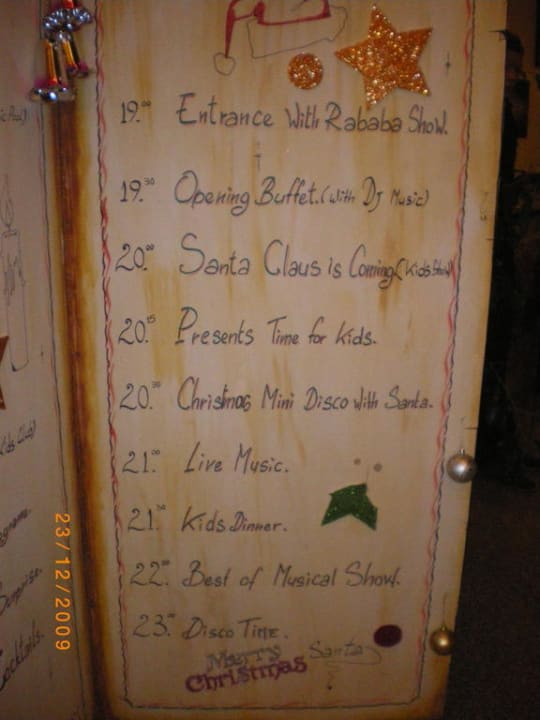 19.00 Entrance With Rababa Show.
19.30 Opening Buffet.(With DJ Music)
20.00 Santa Claus is Coming(Kids Show)
20.15 Presents Time for kids.
20.30 Christmas Mini Disco With Santa.
21.00 Live Music.
21.30 Kids Dinner.
22.00 Best of Musical Show.
23.00 Disco Time.
Merry
Christmas
Santa
Kids Club)
Surprise.
Cocktails.
23/12/2009